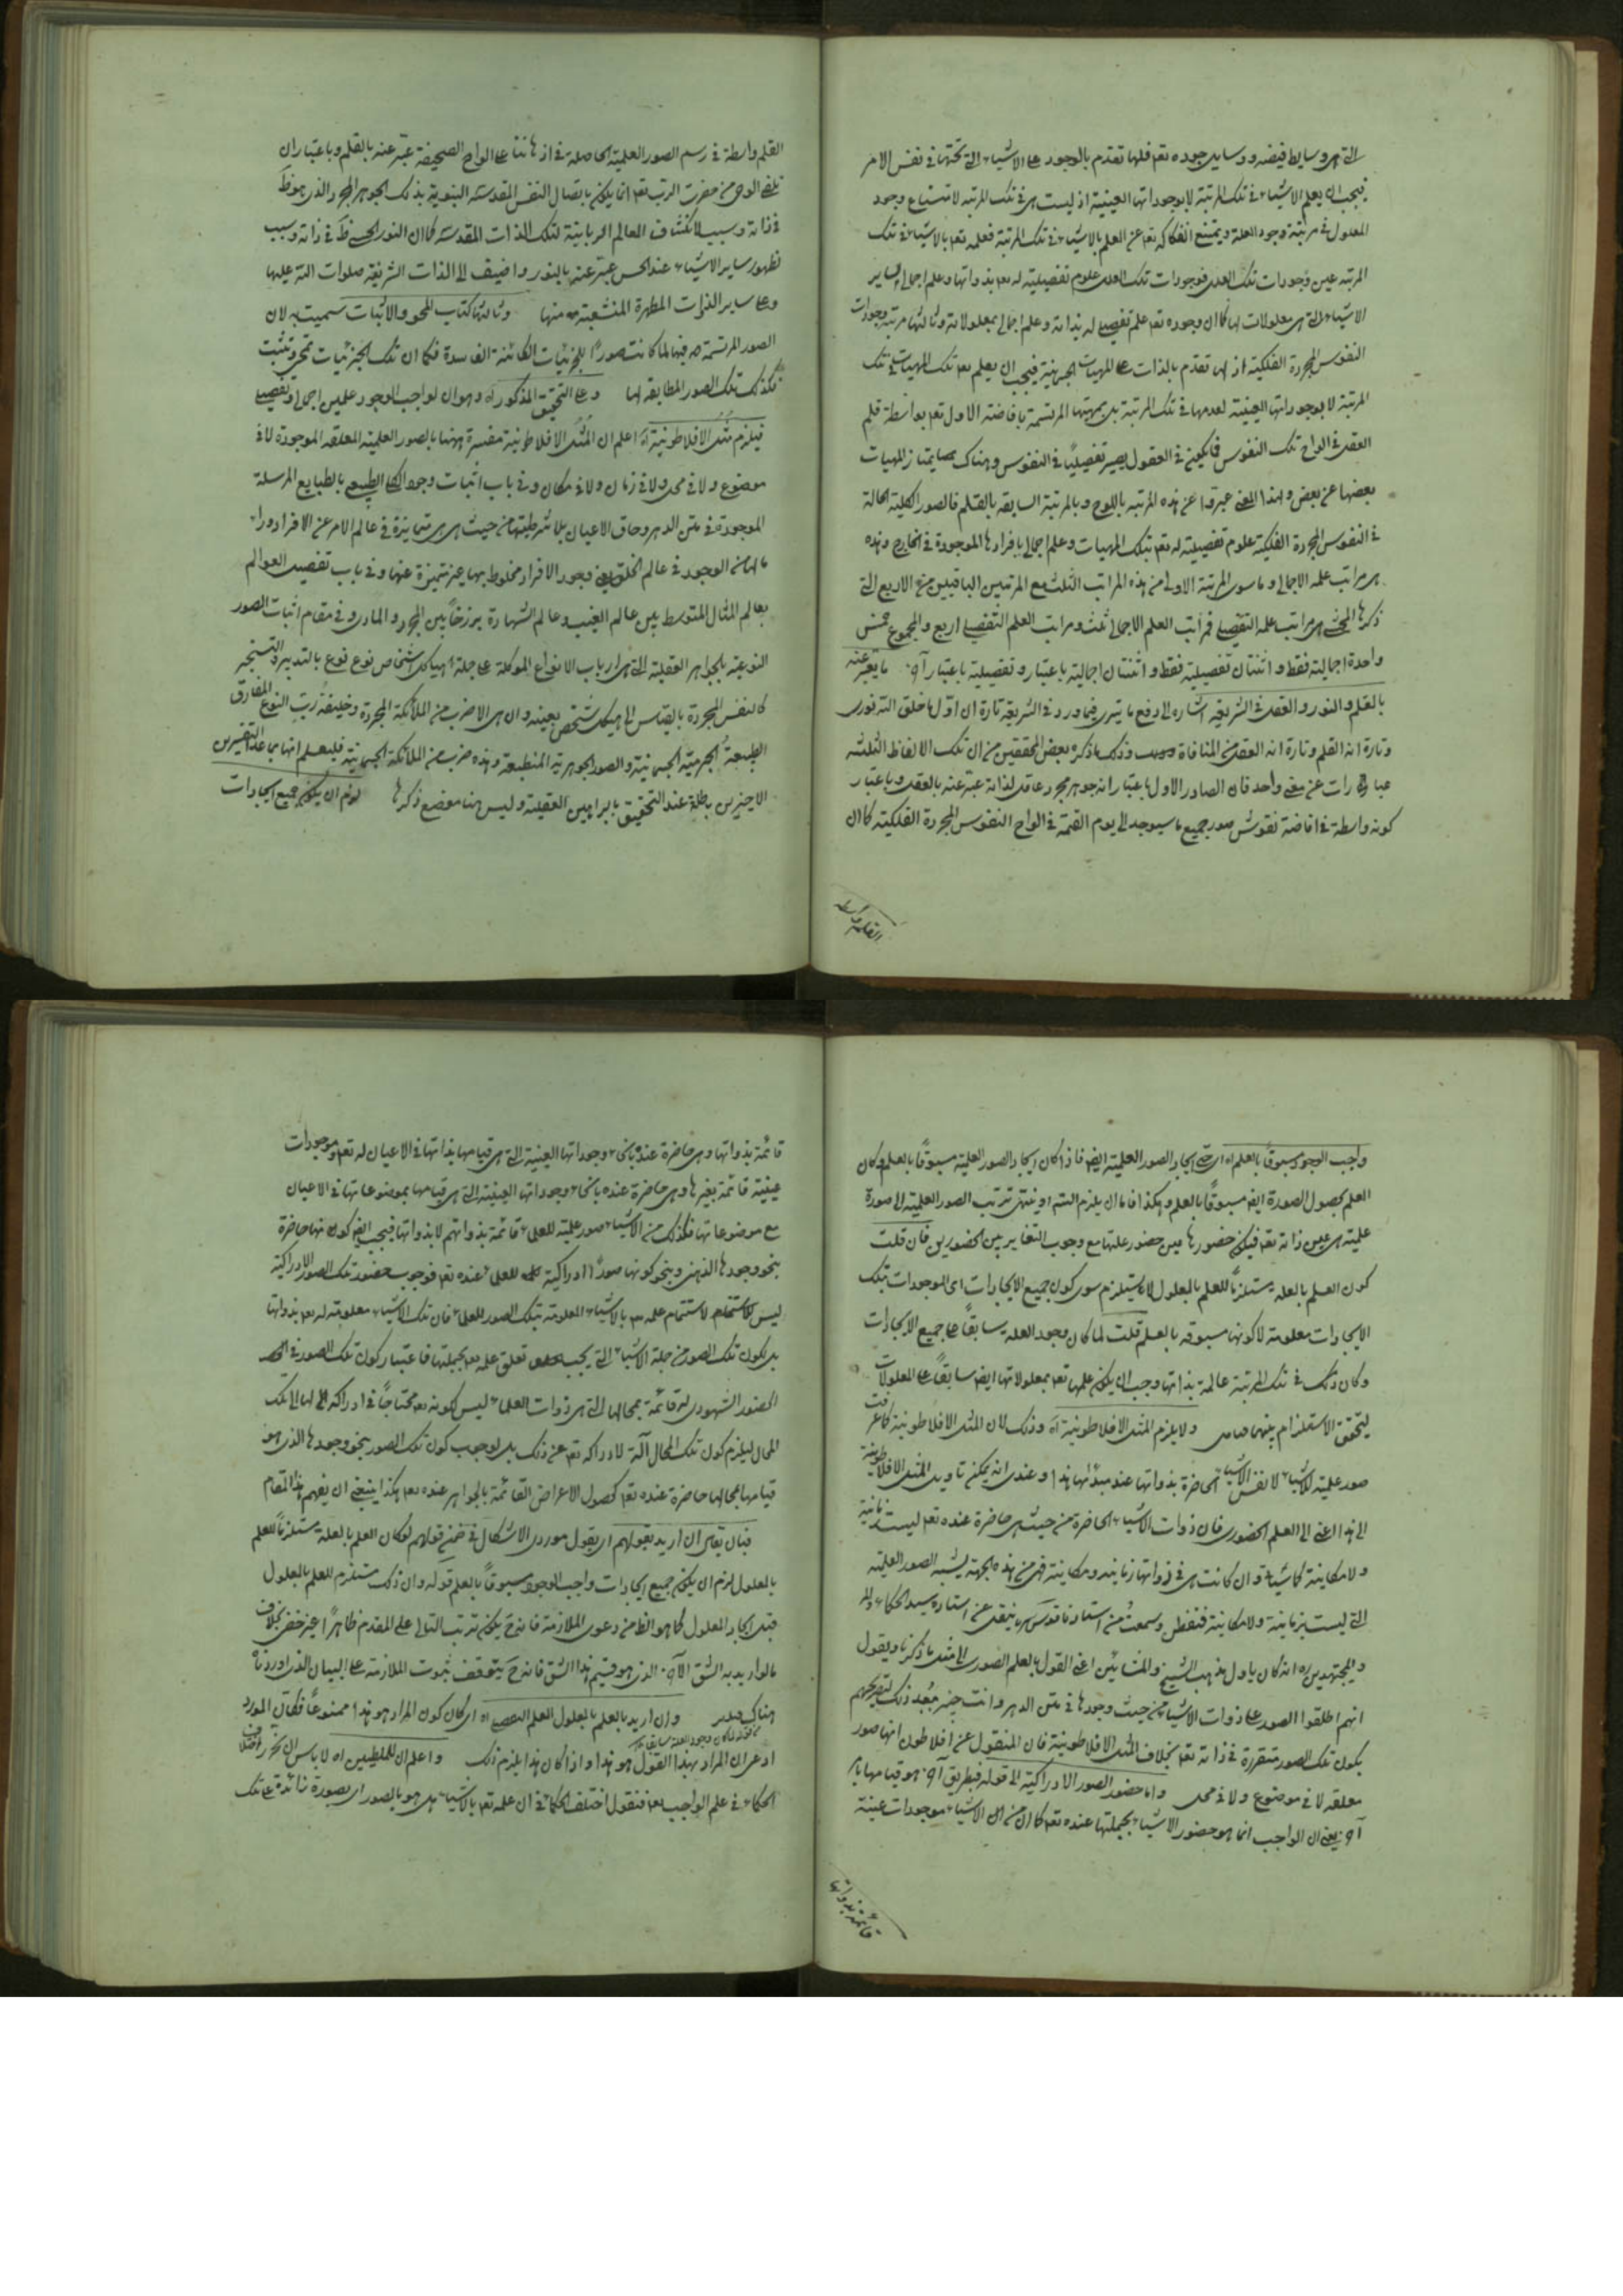 التى هى وسايط فيضه ووسايل جوده تعم فلها تقدم بالوجود على الاشياء التى تحتها فى نفس الامر
فيجب ان يعلم الاشياء فى تلك المرتبة لا بوجوداتها العينية اذ ليست هى فى تلك المرتبة لامتناع وجود
المعلول فى مرتبة وجود العلة ويمتنع انفكاكه تعم عن العلم بالاشياء فى تلك المرتبة فعلمه تعم بالاشياء فى تلك
المرتبة عين وجودات تلك العلل فوجودات تلك العلل علوم تفصيلية له تعم بذواتها وعلم اجمالى بساير
الاشياء التى هى معلولات لها كما ان وجوده تعم علم تفصيلى له بذاته وعلم اجمالى بمعلولاته وثالثها مرتبة وجودات
النفوس المجردة الفلكية اذ لها تقدم بالذات على المهيات الجسمانية فيجب ان يعلم تعم تلك المهيات فى تلك
المرتبة لا بوجوداتها العينية لعدمها فى تلك المرتبة بل بمهيتها المرتسمة بافاضته الاول تعم بواسطة قلم
العقل فى الواح تلك النفوس فما يكون فى العقول يصير تفصيليًا فى النفوس وهناك يمتاز المهيات
بعضها عن بعض ولهذا المعنى عبروا عن هذه المرتبة باللوح وبالمرتبة السابقة بالقلم فالصور الكلية الحالة
فى النفوس المجردة الفلكية علوم تفصيلية له تعم بتلك المهيات وعلم اجمالى بافرادها الموجودة فى الخارج وهذه
هى مراتب علمه الاجمالى وما سوى المرتبة الاولى من هذه المراتب الثلث مع المرتبتين الباقيتين من الاربع التى
ذكرها المحشى هى مراتب علمه التفصيلى فمراتب العلم الاجمالى ثلث ومراتب العلم التفصيلى اربع والمجموع خمس
واحدة اجمالية فقط واثنتان تفصيلية فقط واثنتان اجمالية باعتبار وتفصيلية باعتبار آخر ما يعبر عنه
بالقلم والنور والعقل فى الشريعة اشاره الى دفع ما يترى فيما ورد فى الشريعة تارة ان اول ما خلق الله نورى
وتارة انه القلم وتارة انه العقل من المنافاة وذلك ما ذكره بعض المحققين من ان تلك الالفاظ الثلثه
عبارات عن معنى واحد فان الصادر الاول باعتبار انه جوهر مجرد عاقل لذاته عبر عنه بالعقل وباعتبار
كونه واسطة فى افاضة نقوش صور جميع ما سيوجد الى يوم القيمة فى الواح النفوس المجردة الفلكية كما ان
القلم واسطة
القلم واسطة فى رسم الصور العلمية الحاصلة فى اذهاننا على الواح الصحيفة عبر عنه بالقلم وباعتبار ان
تلقى الوحى من حضرت الرب تعم انما يكون باتصال النفس المقدسة النبوية بذلك الجوهر المجرد الذى هو ظ
فى ذاته وسبب لانكشاف العالم الربانية لتلك الذات المقدسه كما ان النور الحسى ظ فى ذاته وسبب
لظهور ساير الاشياء عند الحس عبر عنه بالنور واضيف الى الذات الشريفة صلوات الله عليها
وعلى ساير الذرات المطهرة المنشعبة منها وثالثها كتاب المحو والاثبات سميت به لان
الصور المرتسمة فيها لما كانت صورًا للجزئيات الكائنة الفاسدة فكما ان تلك الجزئيات تمحى وتثبت
فكذلك تلك الصور المطابقة لها وعلى التحقيق المذكور اه وهو ان لواجب الوجود علمين اجمالى وتفصيلى
فيلزم مثل الافلاطونية اه اعلم ان المثل الافلاطونية مفسرة ههنا بالصور العلمية المعلقه الموجودة لا فى
موضوع ولا فى محل ولا فى زمان ولا فى مكان وفى باب اثبات وجود الكلى الطبيعى بالطبايع المرسلة
الموجودة فى متن الدهر وحاق الاعيان بلا شرطيتها من حيث هى هى متمايزة فى عالم الامر عن الافراد وراء
ما لها من الوجود فى عالم الخلق بعين وجود الافراد مخلوط بها غير متميزة عنها وفى باب تفصيل العوالم
بعالم المثال المتوسط بين عالم الغيب وعالم الشهادة برزخًا بين المجرد والمادى وفى مقام اثبات الصور
النوعية بالجواهر العقلية التى هى ارباب الانواع الموكلة على جملة هياكل اشخاص نوع نوع بالتدبير والتسخير
كالنفس المجردة بالقياس الى هيكل شخص بعينه وان هى الا ضرب من الملائكة المجردة وخليفة رب النوع المفارق
الطبيعة الجرمية الجسمانية والصور الجوهرية المنطبعة وهذه ضرب من الملائكة الجسمانية فليعلم انها بما عدا التفسيرين
الاخيرين باطلة عند التحقيق بالبراهين العقلية وليس هنا موضع ذكرها لزم ان يكون جميع ايجادات
واجب الوجود مسبوقًا بالعلم اه اى حتى ايجاد الصور العلمية ايضا فاذا كان ايجاد الصور العلمية مسبوقًا بالعلم وكان
العلم بحصول الصورة ايضا مسبوقًا بالعلم وهكذا فاما ان يلزم التسم او ينتهى ترتب الصور العلمية الى صورة
علمية هى عين ذاته تعم فيكون حضورها عين حضور علتها مع وجوب التغاير بين الحضورين فان قلت
كون العلم بالعلة مستلزمًا للعلم بالمعلول لا يستلزم سوى كون جميع الايجادات اى الموجودات بتلك
الايجادات معلومة لا كونها مسبوقة بالعلم قلت لما كان وجود العلة سابقًا على جميع الايجادات
وكان ذلك فى تلك المرتبة عالمة بذاتها وجب ان يكون علمها تعم بمعلولاتها ايضا سابقًا على المعلولات
ليتحقق الاستلزام بينهما فتامل ولا يلزم المثل الافلاطونية اه وذلك لان المثل الافلاطونية كما عرفت
صور علمية للاشياء لا نفس الاشياء الحاضرة بذواتها عند مبدئها هذا وعندى انه يمكن تاويل المثل الافلاطونية
الى هذا اعنى الى العلم الحضورى فان ذوات الاشياء الحاضرة من حيث هى حاضرة عنده تعم ليست زمانية
ولا مكانية وان كانت هى فى ذواتها زمانية ومكانية فهى من هذه الجهة يشبه الصور العلمية
التى ليست بزمانية ولا مكانية فتفطن وسمعت من استادنا قدس سره ينقل عن استاده سيد الحكماء
والمجتهدين ره انه كان ياول مذهب الشيخ والمشائين اعنى القول بالعلم الصورى الى مثل ما ذكرنا ويقول
انهم اطلقوا الصور على ذوات الاشياء من حيث وجودها فى متن الدهر وانت خبير ببعد ذلك لتصريحهم
بكون تلك الصور متقررة فى ذاته تعم بخلاف المثل الافلاطونية فان المنقول عن افلاطون انها صور
معلقه لا فى موضوع ولا فى محل واما حضور الصور الادراكية الى قوله فبطريق آخر هو قيامها
آخر يعنى ان الواجب انما هو حضور الاشياء بجملتها عنده تعم كما ان من الاشياء موجودات عينية
قائمة بذواتها
قائمة بذواتها وهى حاضرة عنده بانحاء وجوداتها العينية التى هى قيامها بذاتها فى الاعيان له تعم وموجودات
عينية قائمة بغيرها وهى حاضرة عنده بانحاء وجوداتها العينية التى هى قيامها بموضوعاتها فى الاعيان
مع موضوعاتها فكذلك من الاشياء صور علمية للعلماء قائمة بذواتهم لا بذواتها فيجب ايضا كونها حاضرة
بنحو وجودها الذهنى وبنحو كونها صورًا ادراكية للعلماء عنده تعم فوجوب حضور تلك الصور الادراكية
ليس لاستتمام علمه تعم بالاشياء المعلومة بتلك الصور للعلماء فان تلك الاشياء معلومة له تعم بذواتها
بل بكون تلك الصور من جملة الاشياء التى يجب تعلق علمه تعم بجملتها فاعتبار كون تلك الصور فى
الحضور الشهودى له قائمة بمحالها التى هى ذوات العلماء ليس لكونه تعم محتاجًا فى ادراكه لها الى تلك
المحال ليلزم كون تلك المحال آلة لادراكه تعم عن ذلك بل لوجوب كون تلك الصور بنحو وجودها الذى هو
قيامها بمحالها حاضرة عنده تعم كحصول الاعراض القائمة بالجواهر عنده تعم هكذا ينبغى ان يفهم هذا المقام
فبان يقال ان اريد بقولهم اى يقول مورد الاشكال فى ضمن قولهم لو كان العلم بالعلة مستلزمًا للعلم
بالمعلول لزم ان يكون جميع ايجادات واجب الوجود مسبوقًا بالعلم قوله وان ذلك مستلزم للعلم بالمعلول
قبل ايجاد المعلول كما هو الظ من دعوى الملازمة فانه ح يكون ترتب التالى على المقدم ظاهرًا غير خفى بخلاف
ما لو اريد به الشق الآخر الذى هو قسيم هذا الشق فانه ح يتوقف ثبوت الملازمة على البيان الذى اوردناه
هناك وان اريد بالعلم بالمعلول العلم التفصيلى اه اى كان كون المراد هو هذا ممنوعًا فكان المورد
ادعى ان المراد بهذا القول هو هذا واذا كان هذا يلزم ذلك واعلم ان للملطيين اه لا باس ان
الحكماء فى علم الواجب تعم فنقول اختلف الحكماء فى ان علمه تعم بالاشياء هل هو بالصور اى بصورة زائدة على تلك